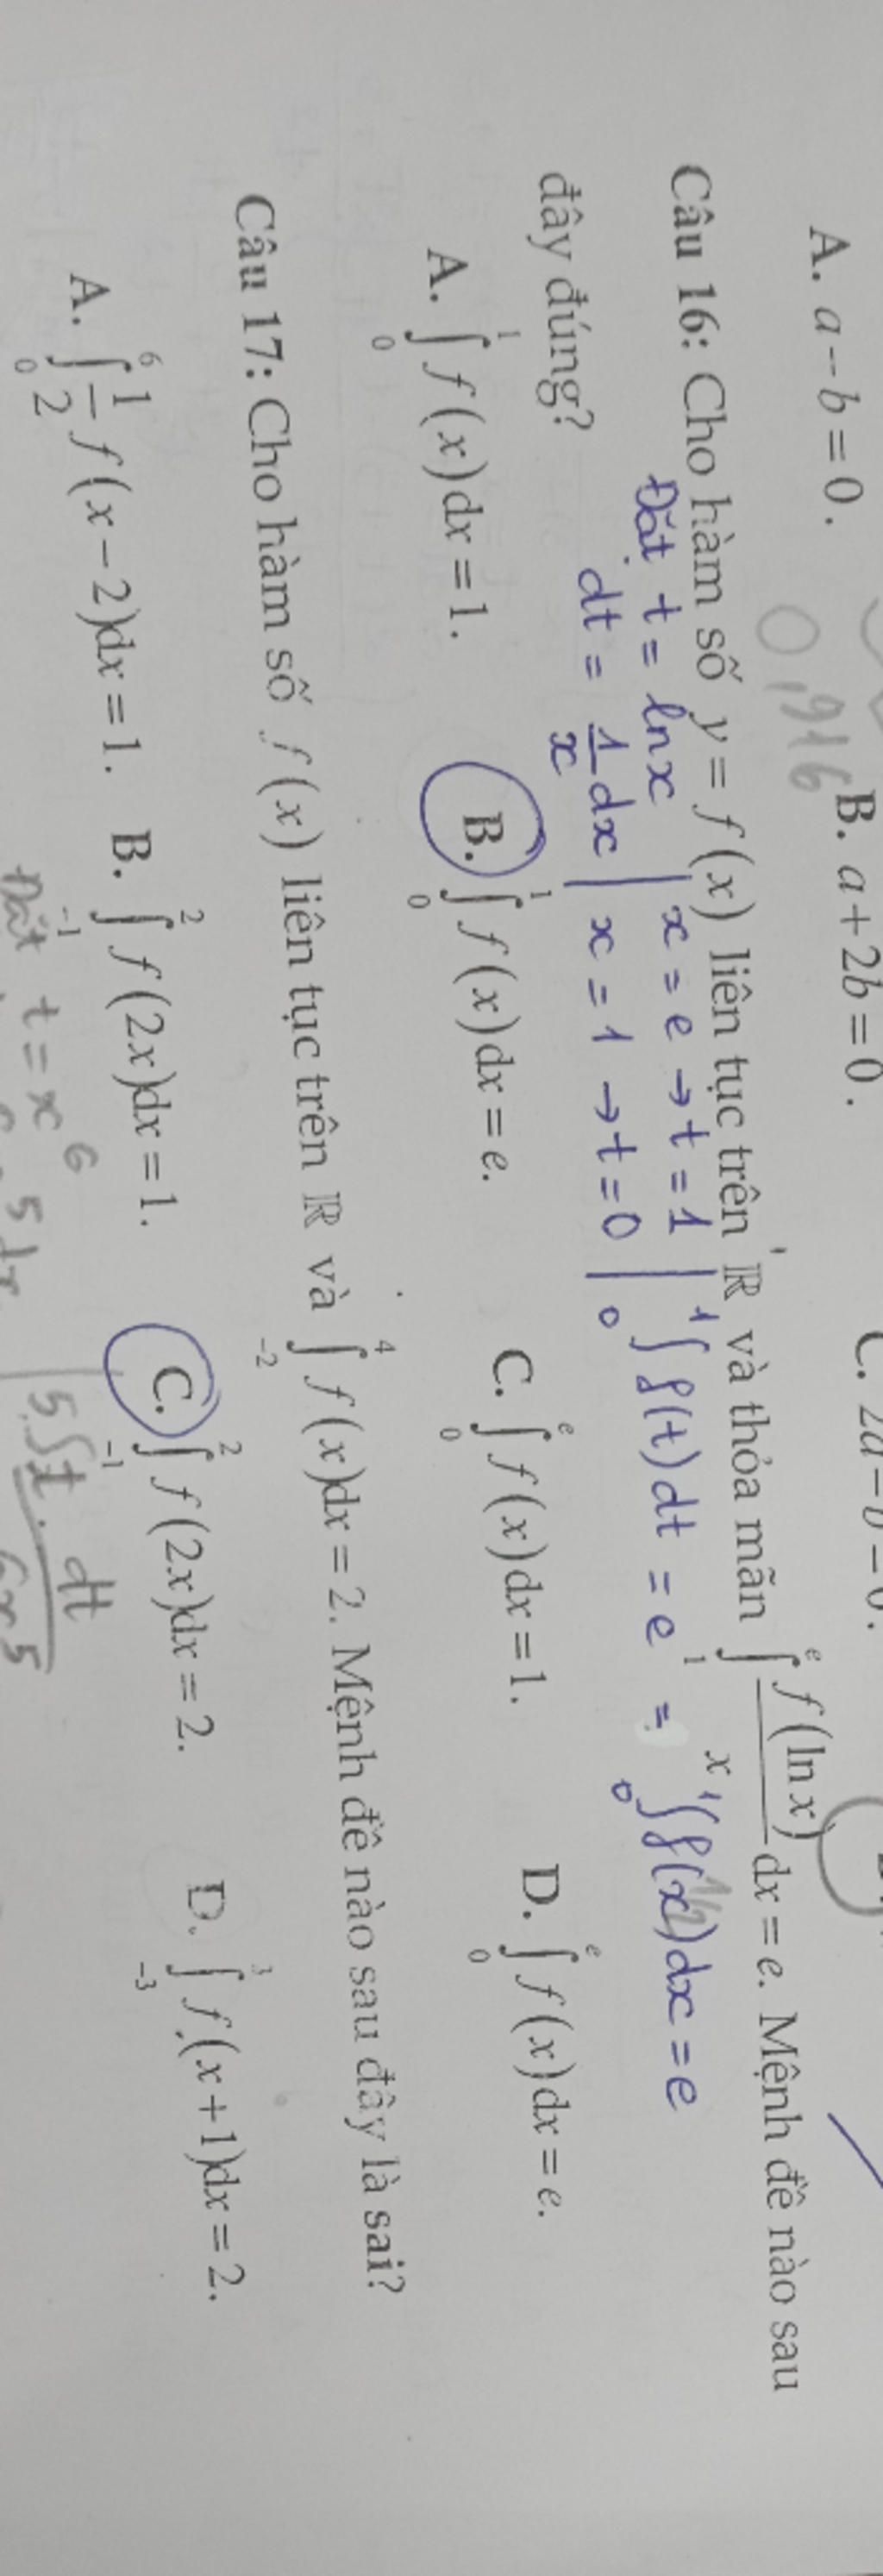 A. a − b = 0. B. a + 2b = 0.
0,916
Câu 16: Cho hàm số y = f(x) liên tục trên ℝ và thỏa mãn ∫₁ᵉ f(ln x)/x dx = e. Mệnh đề nào sau
Đặt t = lnx | x = e → t = 1 | ∫₀¹ f(t)dt = e = ∫₀¹ f(x)dx = e
dt = 1/x dx | x = 1 → t = 0 |
đây đúng?
A. ∫₀¹ f(x)dx = 1. B. ∫₀¹ f(x)dx = e. C. ∫₀ᵉ f(x)dx = 1. D. ∫₀ᵉ f(x)dx = e.
Câu 17: Cho hàm số f(x) liên tục trên ℝ và ∫₋₂⁴ f(x)dx = 2. Mệnh đề nào sau đây là sai?
A. ∫₀⁶ 1/2 f(x − 2)dx = 1. B. ∫₋₁² f(2x)dx = 1. C. ∫₋₁² f(2x)dx = 2. D. ∫₋₃³ f(x + 1)dx = 2.
Đặt t = x⁶